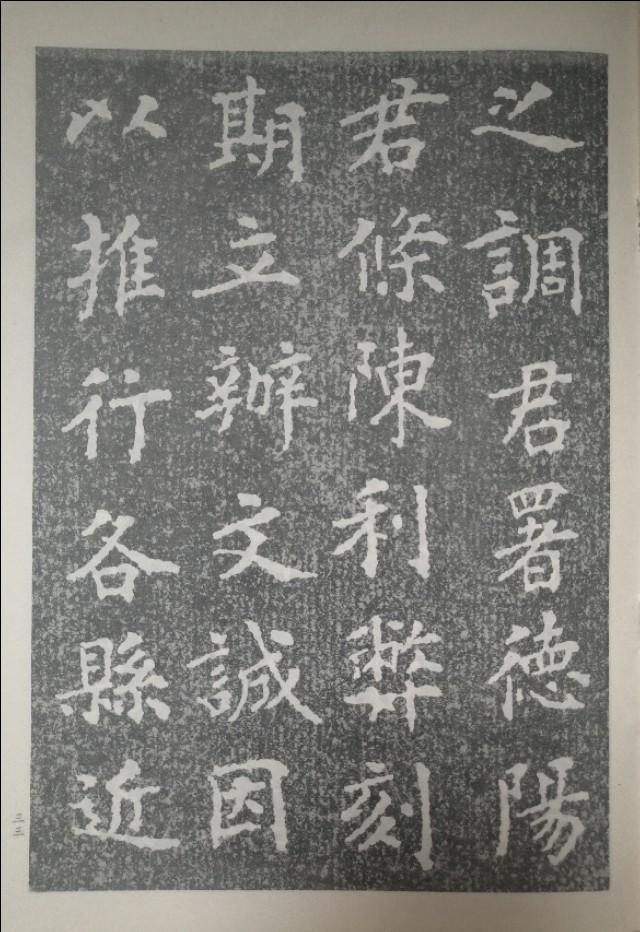 之調君署德陽
君條陳利弊刻
期立辦文誠因
以推行各縣近
三三